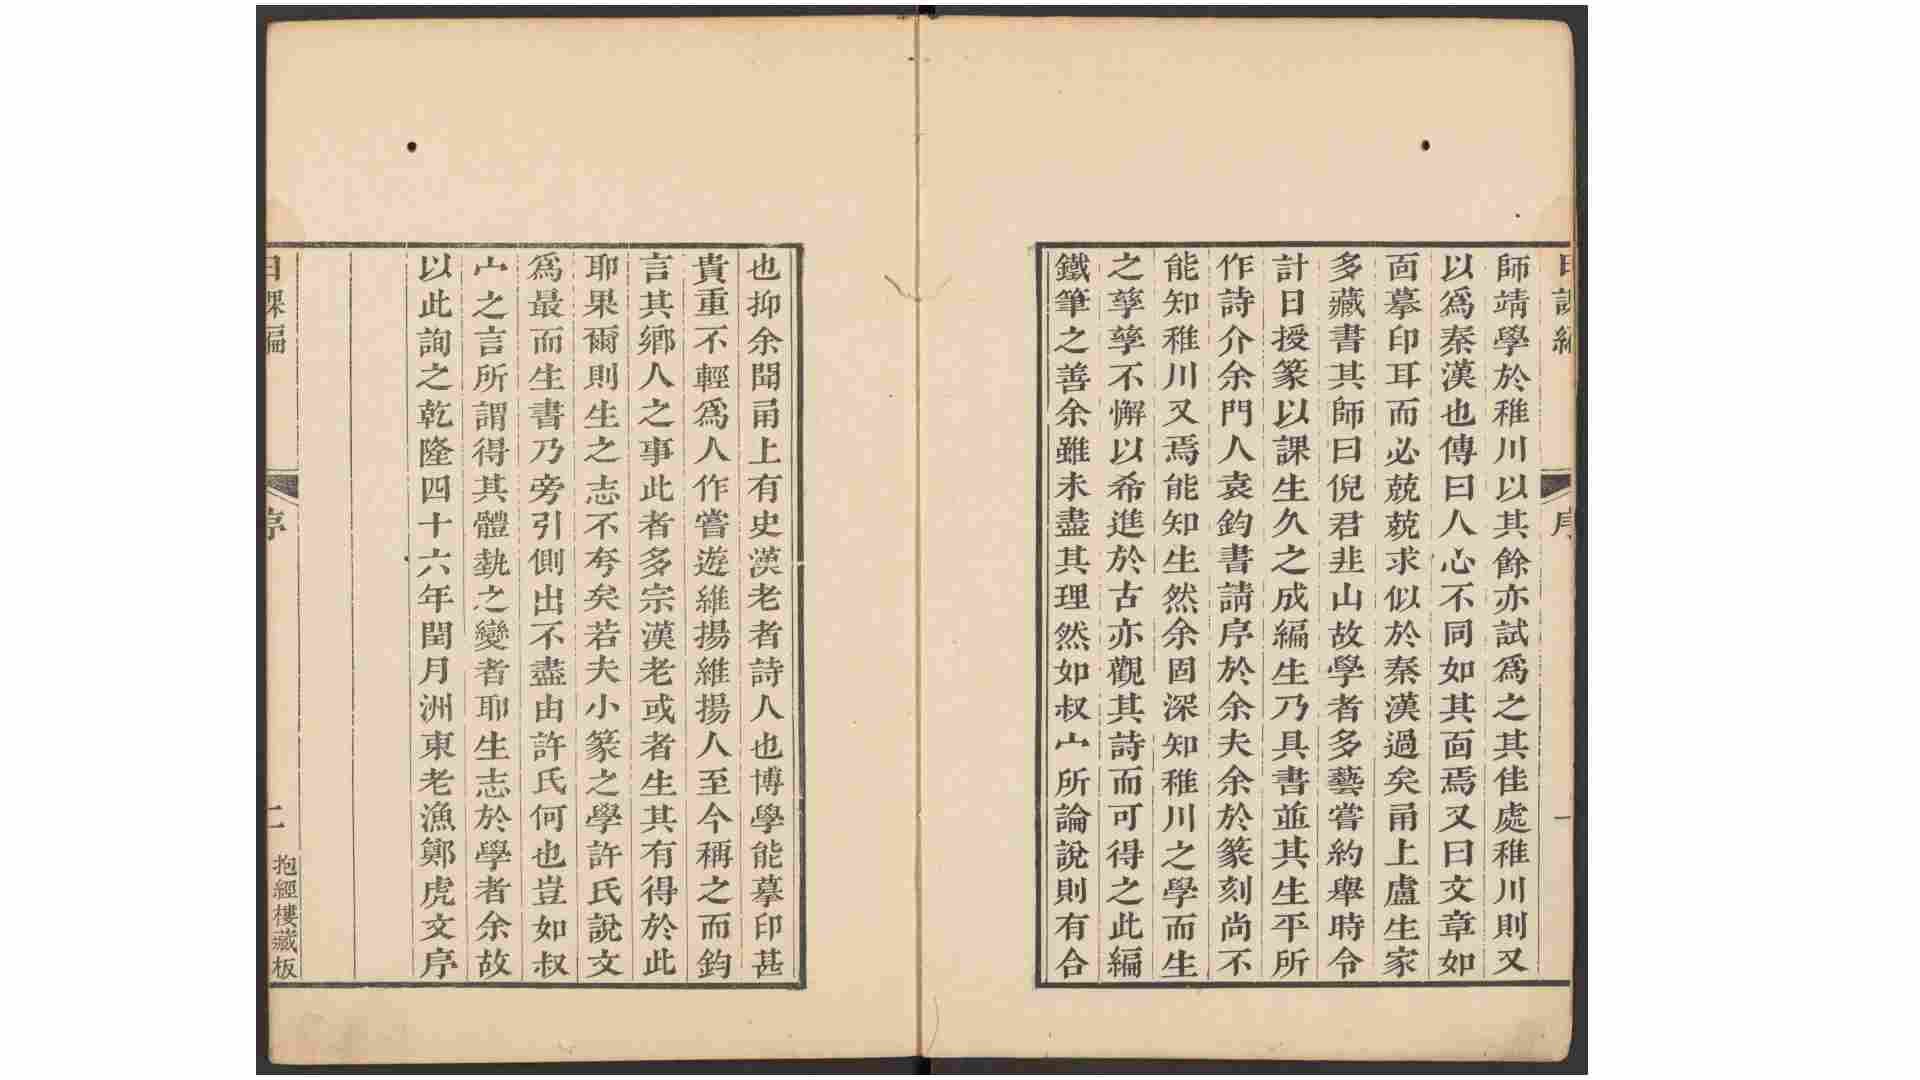 師靖學於稚川以其餘亦試爲之其佳處稚川則又
以爲秦漢也傳曰人心不同如其面焉又曰文章如
面摹印耳而必兢兢求似於秦漢過矣甬上盧生家
多藏書其師曰倪君韭山故學者多藝嘗約舉時令
計日授篆以課生久之成編生乃具書並其生平所
作詩介余門人袁鈞書請序於余夫余於篆刻尚不
能知稚川又焉能知生然余固深知稚川之學而生
之孳孳不懈以希進於古亦觀其詩而可得之此編
鐵筆之善余雖未盡其理然如叔宀所論說則有合
也抑余聞甬上有史漢老者詩人也博學能摹印甚
貴重不輕爲人作嘗遊維揚維揚人至今稱之而鈞
言其鄉人之事此者多宗漢老或者生其有得於此
耶果爾則生之志不夸矣若夫小篆之學許氏說文
爲最而生書乃旁引側出不盡由許氏何也豈如叔
宀之言所謂得其體埶之變者耶生志於學者余故
以此詢之乾隆四十六年閏月洲東老漁鄭虎文序
日課編
序
二
抱經樓藏板